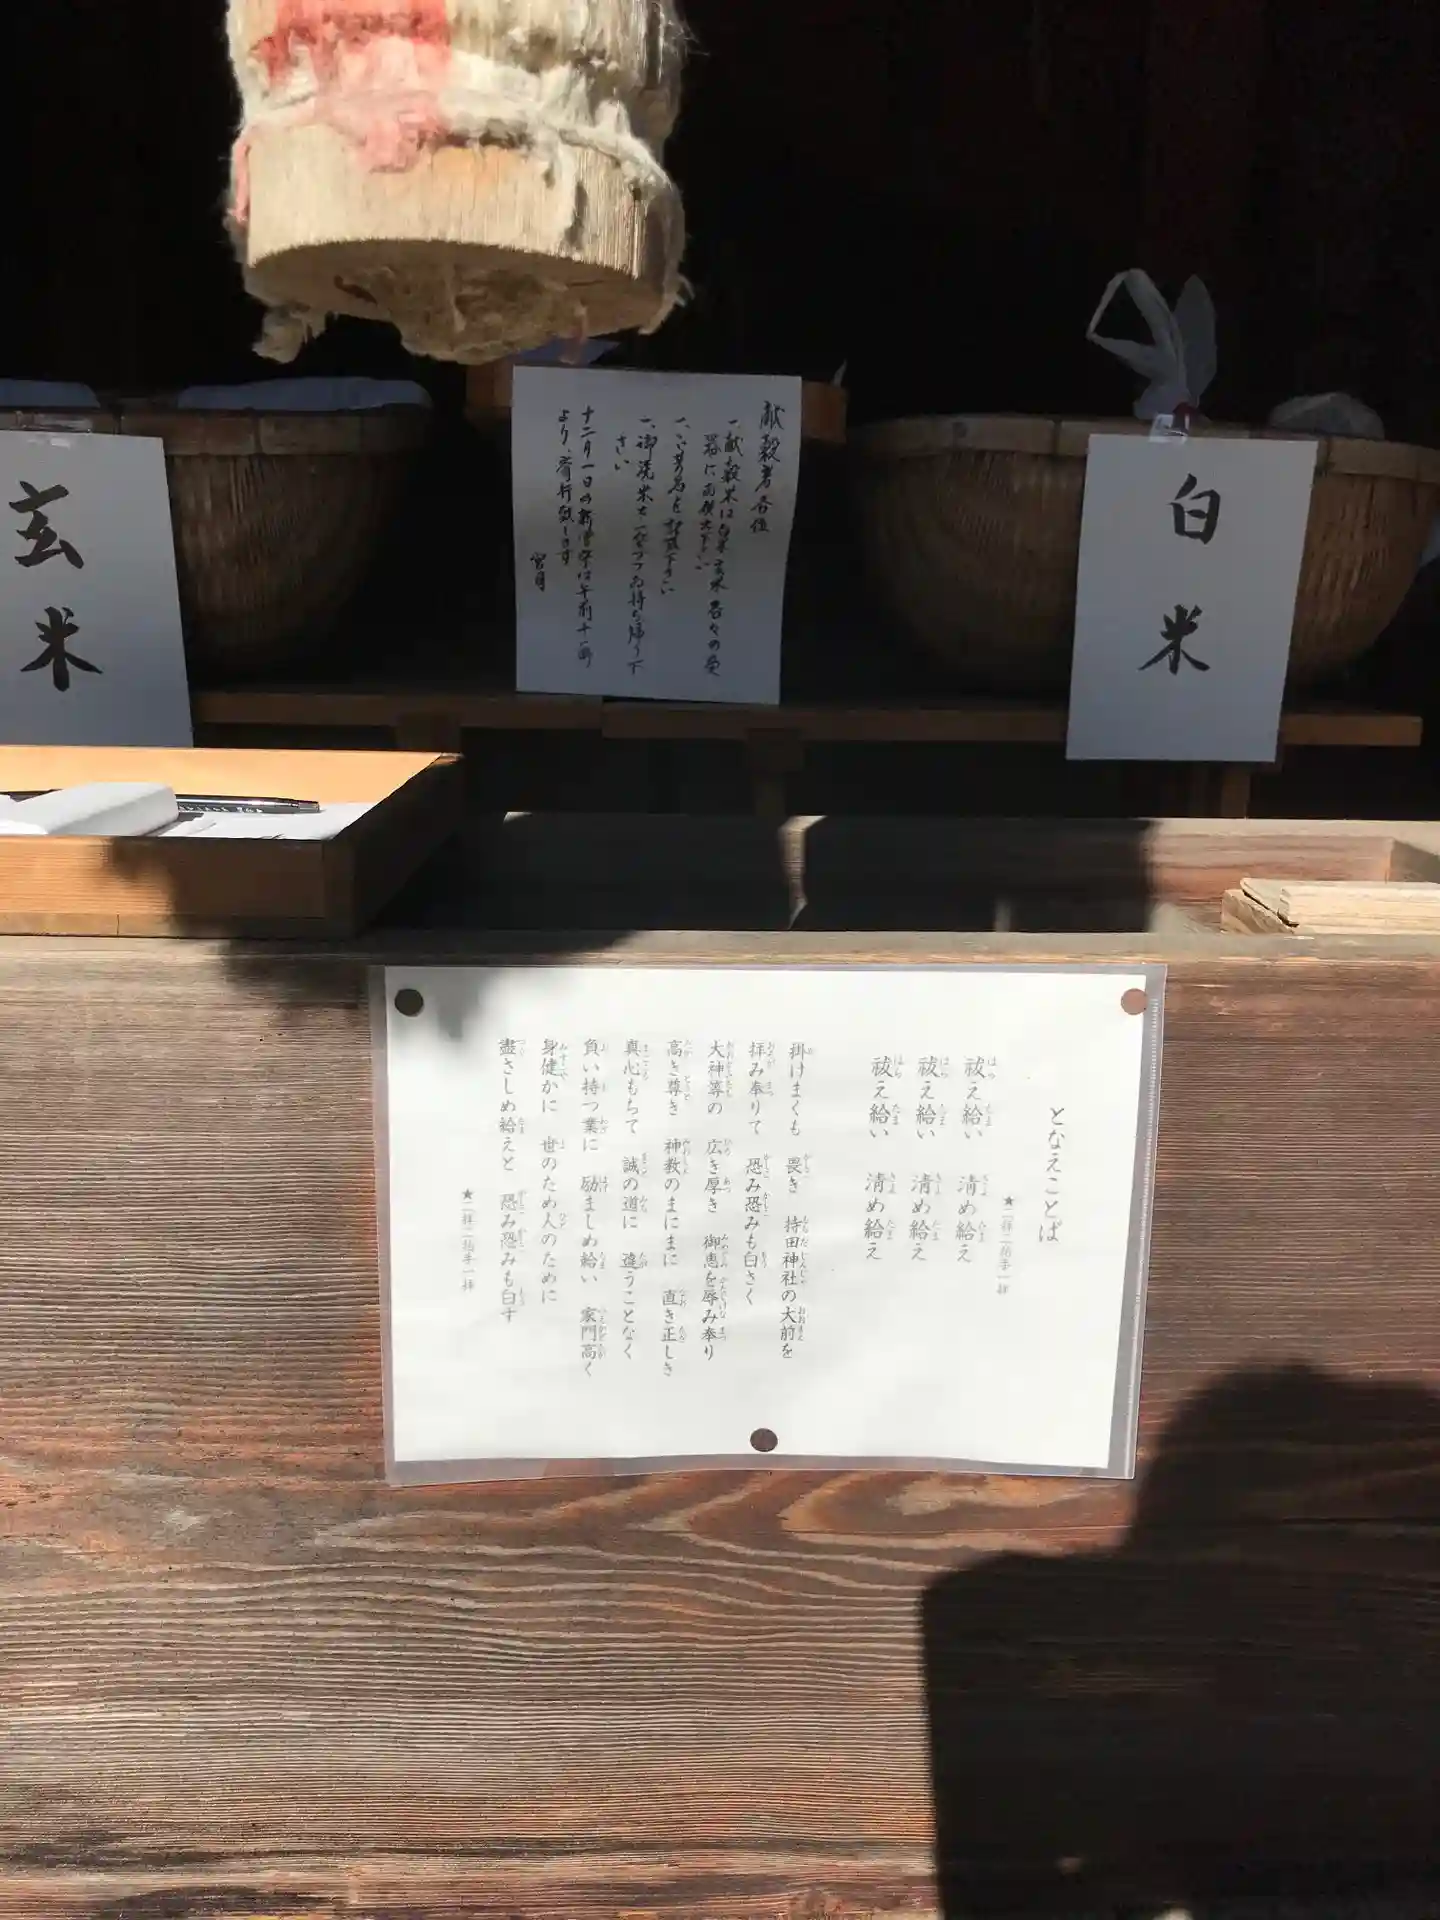 玄米
献穀者各位
一、献穀米は白米、玄米各々の受
器にお供え下さい
一、ご芳名を記載下さい
一、御洗米を一つづつお持ち帰り下
さい
十二月一日の新嘗祭は午前十一時
より、斎行致します
宮司
白米
となえことば
★二拝二拍手一拝
祓え給い 清め給え
祓え給い 清め給え
祓え給い 清め給え
掛けまくも 畏き 持田神社の大前を
拝み奉りて 恐み恐みも白さく
大神等の 広き厚き 御恵を辱み奉り
高き尊き 神教のまにまに 直き正しき
真心もちて 誠の道に 違うことなく
負い持つ業に 励ましめ給い 家門高く
身健かに 世のため人のために
盡さしめ給えと 恐み恐みも白す
★二拝二拍手一拝